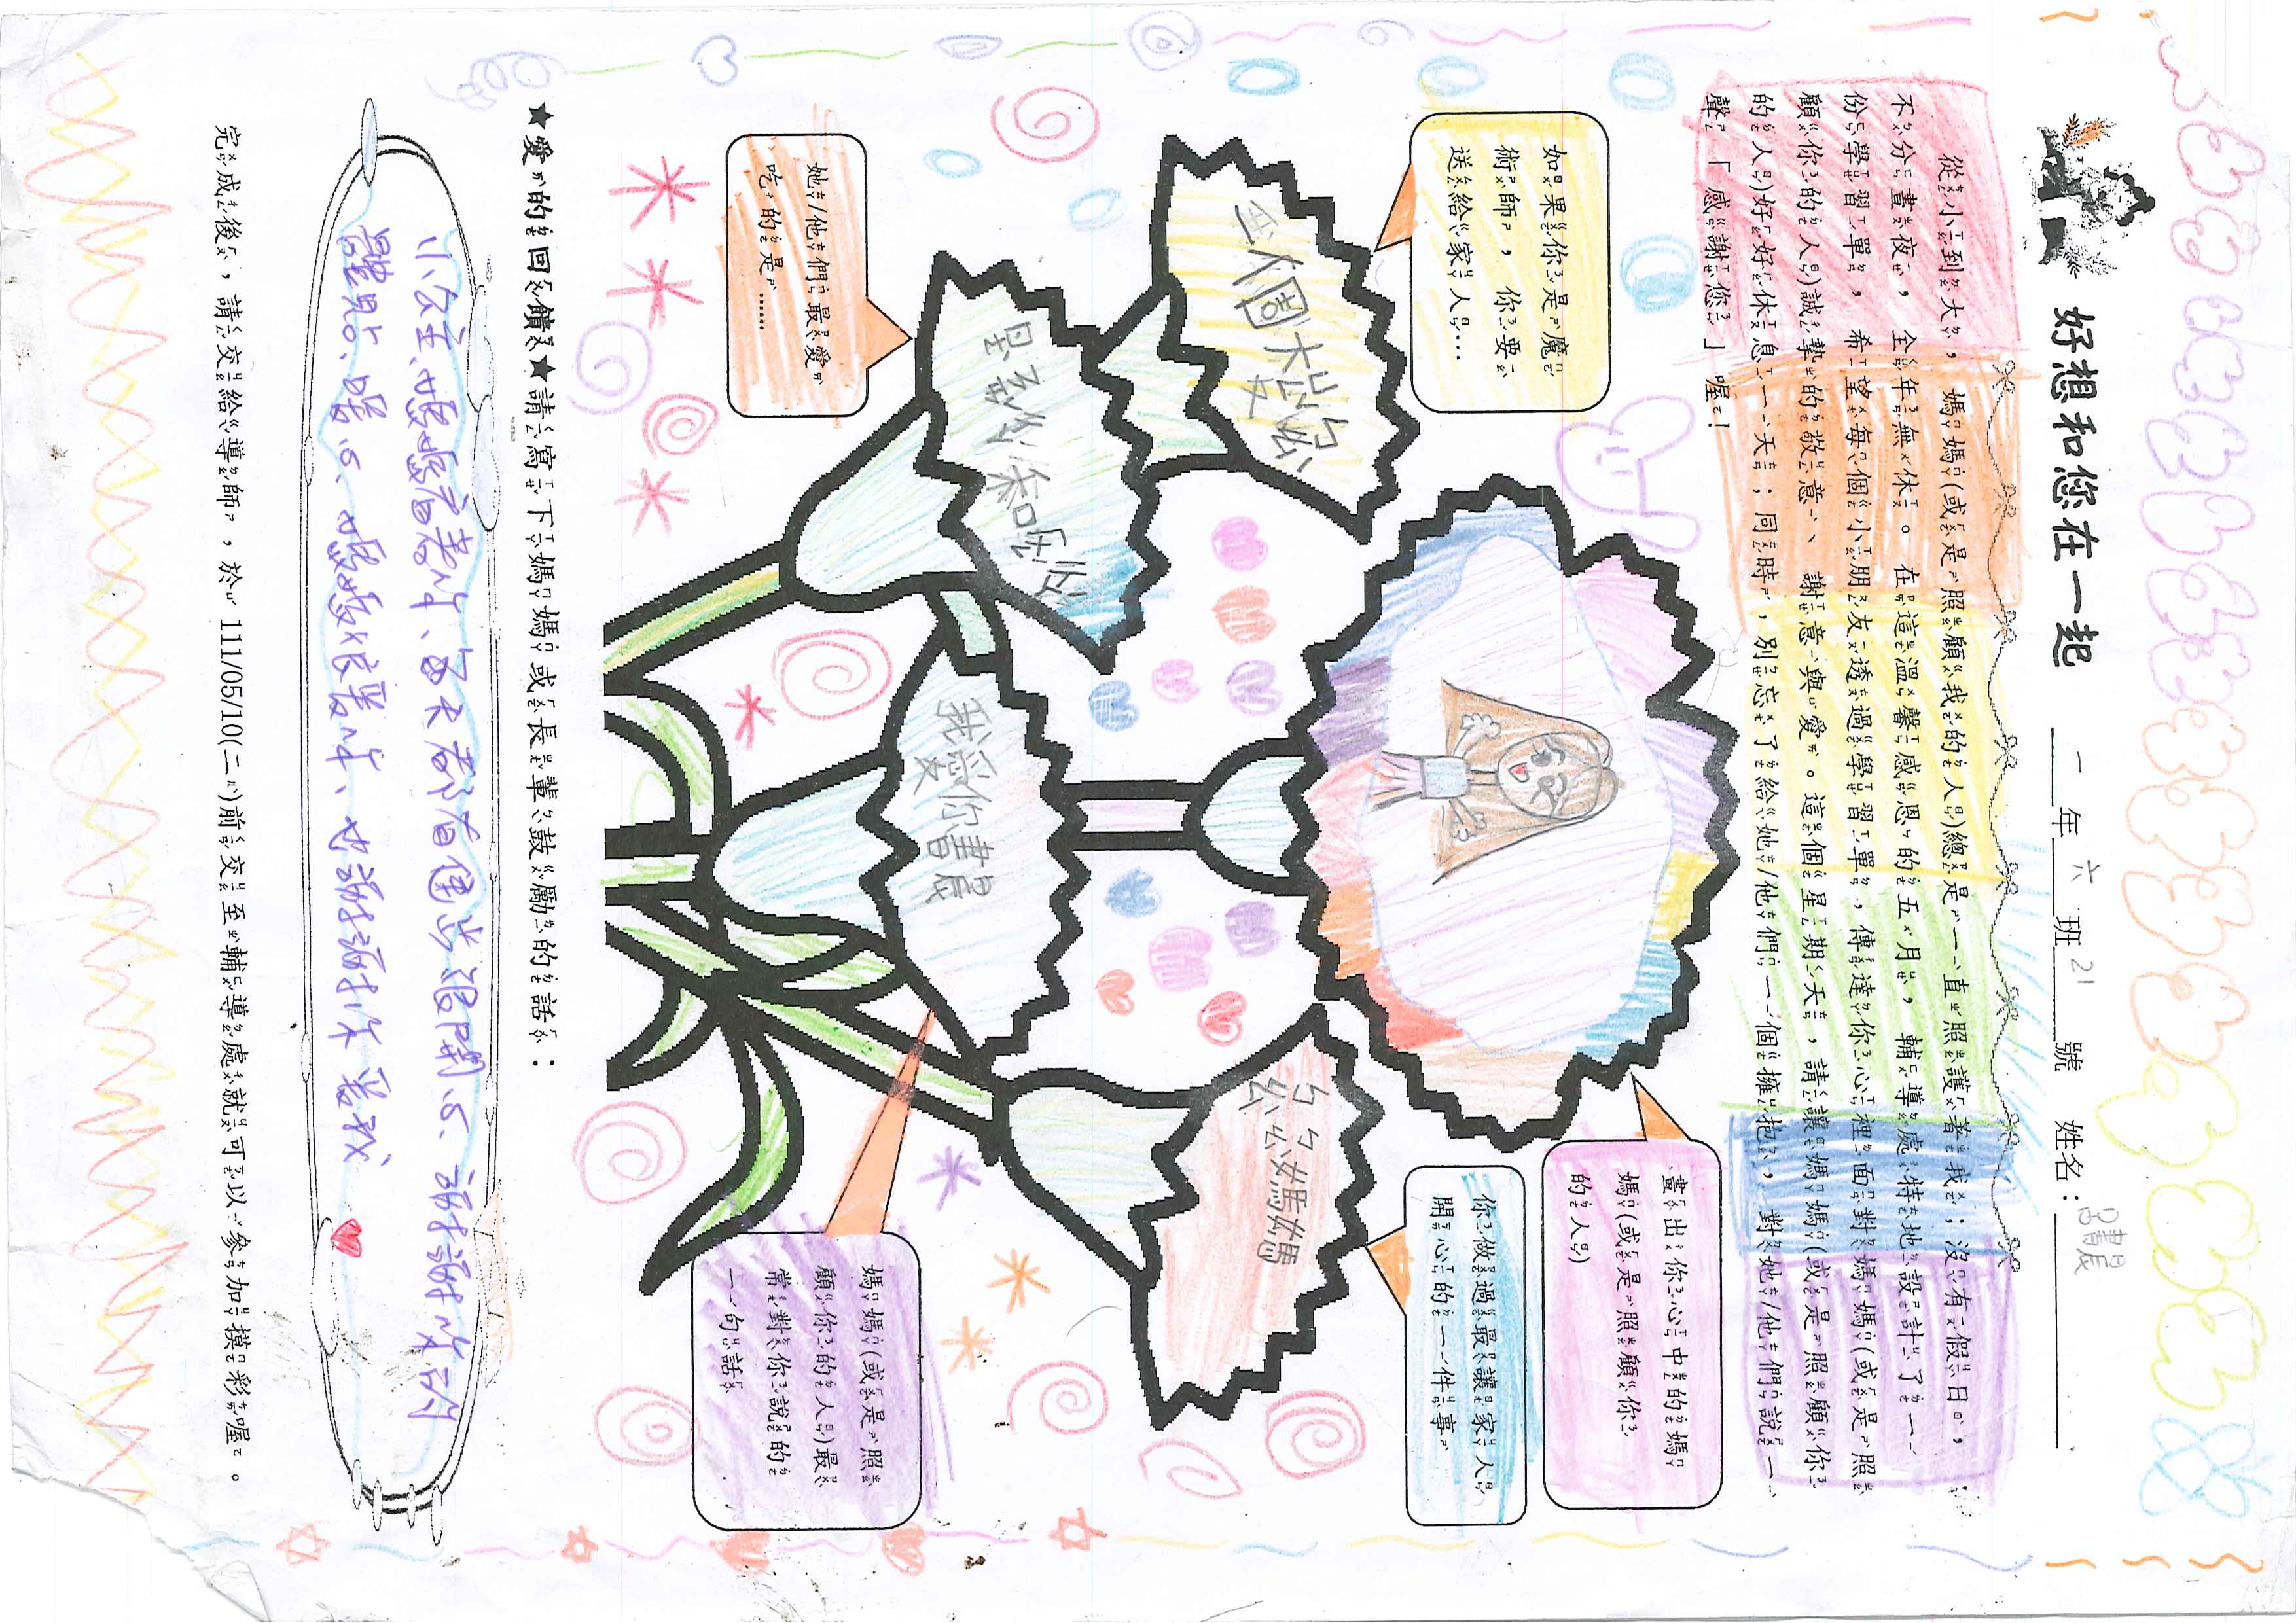 好想和您在一起 一年六班21號 姓名：書晨
從小到大，媽媽(或是照顧我的人)總是一直照護著我；沒有假日，
不分晝夜，全年無休。在這溫馨感恩的五月，輔導處特地設計了一
份學習單，希望每個小朋友透過學習單，傳達你心裡面對媽媽(或是照
顧你的人)誠摯的敬意、謝意與愛。這個星期天，請讓媽媽(或是照顧你
的人)好好休息一天；同時，別忘了給她/他們一個擁抱，對她/他們說一
聲「感謝您」喔!
如果你是魔
術師，你要
送給家人…
畫出你心中的媽
媽(或是照顧你
的人)
你做過最讓家人
開心的一件事
媽媽
她/他們最愛
吃的是……
媽媽(或是照
顧你的人)最
常對你說的
一句話
我愛你書晨
★愛的回饋★請寫下媽媽或長輩鼓勵的話：
小公主、媽媽、每天都有很開心、謝謝妳的
體貼、暖心、媽媽很愛妳、也謝謝妳愛我
完成後，請交給導師，於 111/05/10(二)前交至輔導處就可以參加摸彩喔。